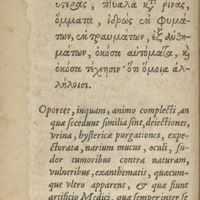 ὑστέρας, πτύαλα καὶ ῥῖνας,
ὄμματα, ἱδρὼς ἐκ φυμά-
των, ἐκ τραυμάτων, ἐξ ἐξανθη-
μάτων, ὁκόσα αὐτόματα, καὶ
ὁκόσα τέχνῃσιν· ὅτι ὅμοια ἀλ-
λήλοισι.
Oportet, inquam, animo complecti, an
quæ secedunt similia sint, deiectiones,
vrina, hystericæ purgationes, expe-
ctorata, narium mucus, oculi, su-
dor tumoribus contra naturam,
vulneribus, exanthematis, quæcum-
que vltro apparent, & quæ fiunt
artificio Medici, quæ semper inter se